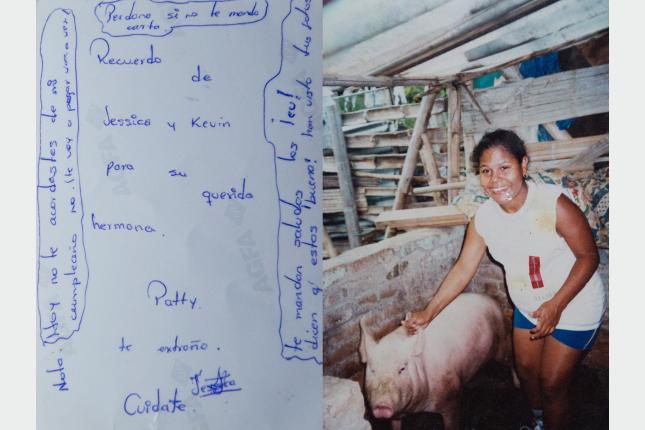 Perdona si no te mando
carta.
Recuerdo
de
Jessica y Kevin
para su
querida
hermana.
Patty.
te extraño.
Jessica
Cuidate.
Nota: Hoy no te acordastes de mi
cumpleaños no. ¡te voy a pegar vas a ver!
te mandan saludos los ¡eu!
dicen q' estas bueno! han visto tus fotos
AGFA